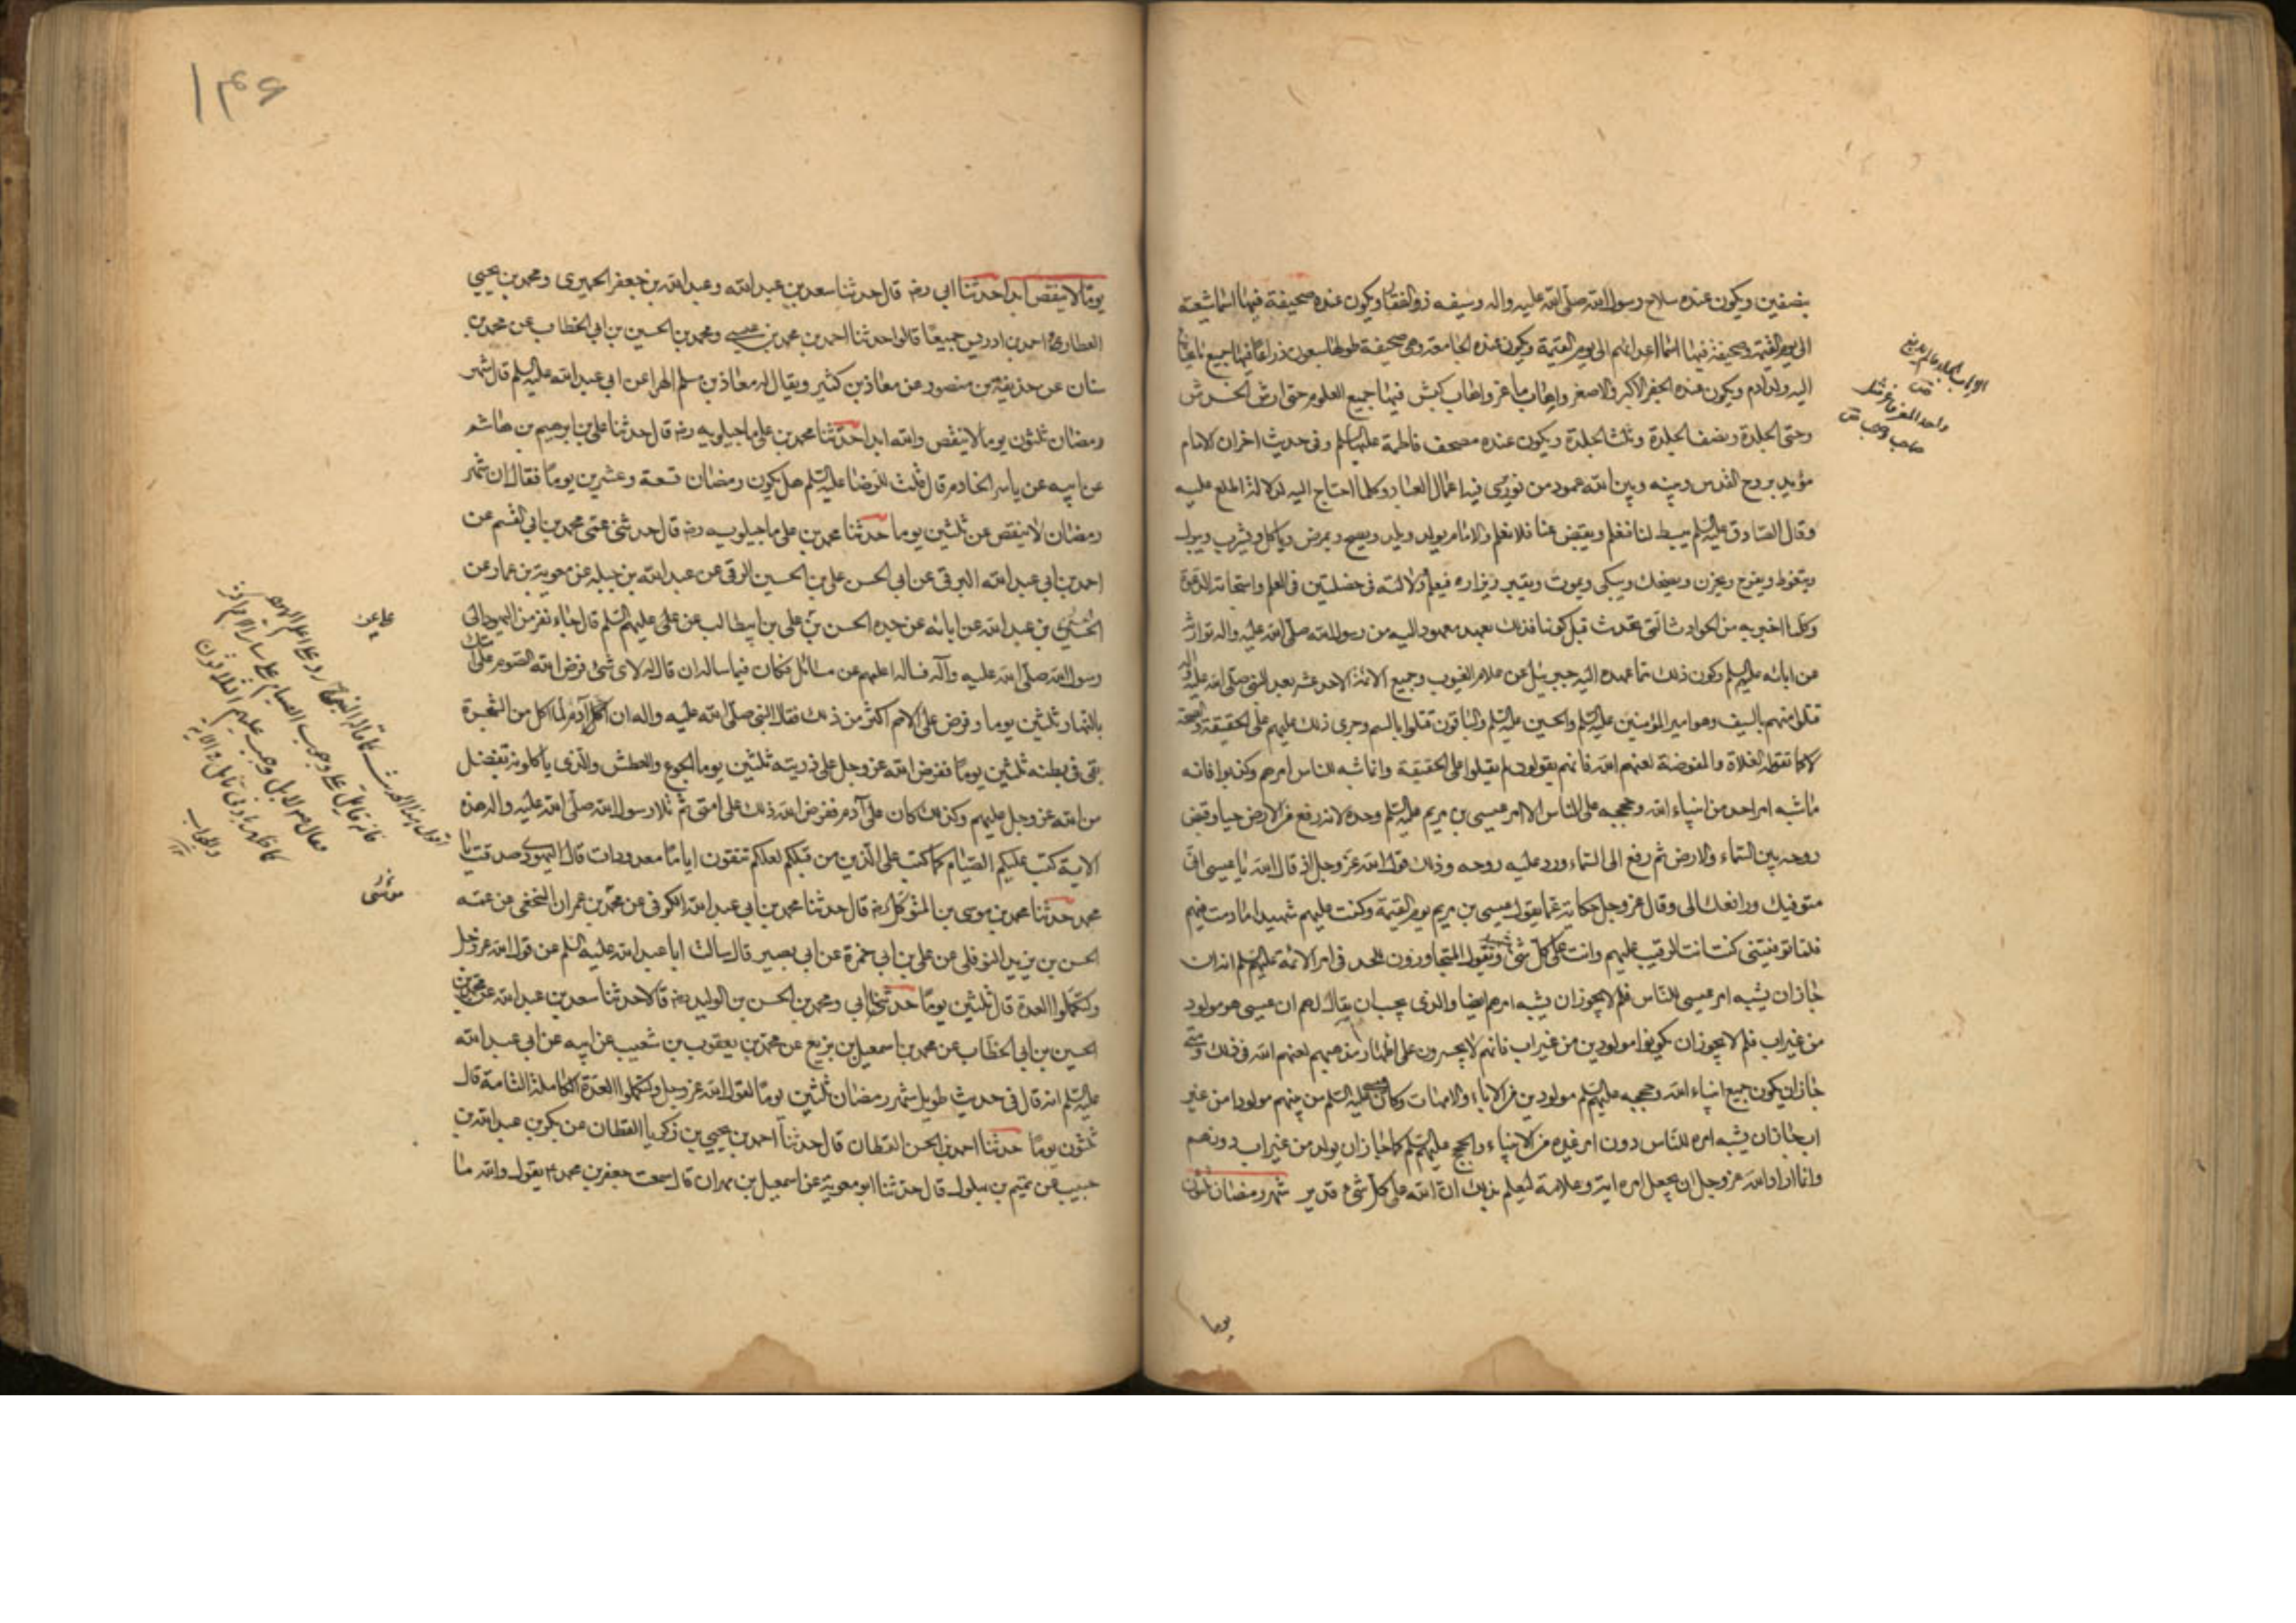 بنصفين ويكون عنده سلاح رسول الله صلى الله عليه واله وسيفه ذو الفقار ويكون عنده صحيفة فيها اسماء شيعته
الى يوم القيمة وصحيفة فيها اسماء اعدائهم الى يوم القيمة ويكون عنده الجامعة وهى صحيفة طولها سبعون ذراعا فيها جميع ما يحتاج
اليه ولد ادم ويكون عنده الجفر الاكبر والاصغر واهاب ماعز واهاب كبش فيهما جميع العلوم حتى ارش الخدش
وحتى الجلدة ونصف الجلدة وثلث الجلدة ويكون عنده مصحف فاطمة عليها السلم وفى حديث اخر ان الامام
مؤيد بروح القدس وبينه وبين الله عمود من نور يرى فيه اعمال العباد وكلما احتاج اليه لدلالة اطلع عليه
وقال الصادق عليه السلم يبسط لنا فنعلم ويقبض عنا فلا نعلم والامام يولد ويلد ويصح ويمرض وياكل ويشرب ويبول
ويتغوط ويفرح ويحزن ويضحك ويبكى ويموت ويقبر ويزار فيعلم ودلالته فى خصلتين فى العلم واستجابة الدعوة
وكلما اخبر به من الحوادث التى تحدث قبل كونها فذلك بعهد معهود اليه من رسول الله صلى الله عليه واله توارثه
عن ابائه عليهم السلم وكون ذلك مما عهده اليه جبرئيل عن علام الغيوب وجميع الائمة الاحد عشر بعد النبى صلى الله عليه واله
قتلوا منهم بالسيف وهو امير المؤمنين عليه السلم والحسين عليه السلم والباقون قتلوا بالسم وجرى ذلك عليهم على الحقيقة والصحة
لا كما تقوله الغلاة والمفوضة لعنهم الله فانهم يقولون لم يقتلوا على الحقيقة وانما شبه للناس امرهم وكذبوا فانه
ما شبه امر احد من انبياء الله وحججه على الناس الا امر عيسى بن مريم عليه السلم وحده لانه رفع من الارض حيا وقبض
روحه بين السماء والارض ثم رفع الى السماء ورد عليه روحه وذلك قول الله عز وجل اذ قال الله يا عيسى انى
متوفيك ورافعك الى وقال عز وجل حكاية عما يقول عيسى بن مريم يوم القيمة وكنت عليهم شهيدا ما دمت فيهم
فلما توفيتنى كنت انت الرقيب عليهم وانت على كل شئ شهيد ويقول المتجاوزون للحد فى امر الائمة عليهم السلم انه ان
جاز ان يشبه امر عيسى للناس فلم لا يجوز ان يشبه امرهم ايضا والذى يجب ان يقال لهم ان عيسى هو مولود
من غير اب فلم لا يجوز ان يكونوا مولودين من غير اب فانهم لا يجسرون على اظهار مذهبهم لعنهم الله فى ذلك ومتى
جاز ان يكون جميع انبياء الله وحججه عليهم السلم مولودين من الاباء والامهات وكان عيسى عليه السلم من بينهم مولودا من غير
اب جاز ان يشبه امره للناس دون امر غيره من الانبياء والحجج عليهم السلم كما جاز ان يولد من غير اب دونهم
وانما اراد الله عز وجل ان يجعل امره اية وعلامة ليعلم بذلك ان الله على كل شئ قدير شهر رمضان ثلثون
يوما
۱۴۶
يوما لا ينقص ابدا حدثنا ابى رضه قال حدثنا سعد بن عبد الله وعبد الله بن جعفر الحميرى ومحمد بن يحيى
العطار واحمد بن ادريس جميعا قالوا حدثنا احمد بن محمد بن عيسى ومحمد بن الحسين بن ابى الخطاب عن محمد بن
سنان عن حذيفة بن منصور عن معاذ بن كثير ويقال له معاذ بن مسلم الهرا عن ابى عبد الله عليه السلم قال شهر
رمضان ثلثون يوما لا ينقص والله ابدا حدثنا محمد بن على ماجيلويه رضه قال حدثنا على بن ابرهيم بن هاشم
عن ابيه عن ياسر الخادم قال قلت للرضا عليه السلم هل يكون رمضان تسعة وعشرين يوما فقال ان شهر
رمضان لا ينقص عن ثلثين يوما حدثنا محمد بن على ماجيلويه رضه قال حدثنى عمى محمد بن ابى القسم عن
احمد بن ابى عبد الله البرقى عن ابى الحسن على بن الحسين الرقى عن عبد الله بن جبله عن معوية بن عمار عن
الحسن بن عبد الله عن ابائه عن جده الحسن بن على بن ابيطالب عن على عليهم السلم قال جاء نفر من اليهود الى
رسول الله صلى الله عليه وآله فساله اعلمهم عن مسائل فكان فيما ساله ان قال له لاى شئ فرض الله الصوم على امتك
بالنهار ثلثين يوما وفرض على الامم اكثر من ذلك فقال النبى صلى الله عليه واله ان آدم لما اكل من الشجرة
بقى فى بطنه ثلثين يوما ففرض الله عز وجل على ذريته ثلثين يوما الجوع والعطش والذى ياكلونه تفضل
من الله عز وجل عليهم وكذلك كان على آدم ففرض الله ذلك على امتى ثم تلا رسول الله صلى الله عليه واله هذه
الاية كتب عليكم الصيام كما كتب على الذين من قبلكم لعلكم تتقون اياما معدودات قال اليهودى صدقت يا
محمد حدثنا محمد بن موسى بن المتوكل رضه قال حدثنا محمد بن ابى عبد الله الكوفى عن محمد بن عمران النخعى عن عمه
الحسن بن يزيد النوفلى عن على بن ابى حمزة عن ابى بصير قال سالت ابا عبد الله عليه السلم عن قول الله عز وجل
ولتكملوا العدة قال ثلثين يوما حدثنا ابى ومحمد بن الحسن بن الوليد رضه قالا حدثنا سعد بن عبد الله عن محمد بن
الحسين بن ابى الخطاب عن محمد بن اسمعيل بن بزيع عن محمد بن يعقوب بن شعيب عن ابيه عن ابى عبد الله
عليه السلم انه قال فى حديث طويل شهر رمضان ثلثين يوما لقول الله عز وجل ولتكملوا العدة الكاملة التامة قال
ثلثون يوما حدثنا احمد بن الحسن القطان قال حدثنا احمد بن يحيى بن زكريا القطان عن بكر بن عبد الله بن
حبيب عن تميم بن بهلول قال حدثنا ابو معوية عن اسمعيل بن مهران قال سمعت جعفر بن محمد ع يقول والله ما